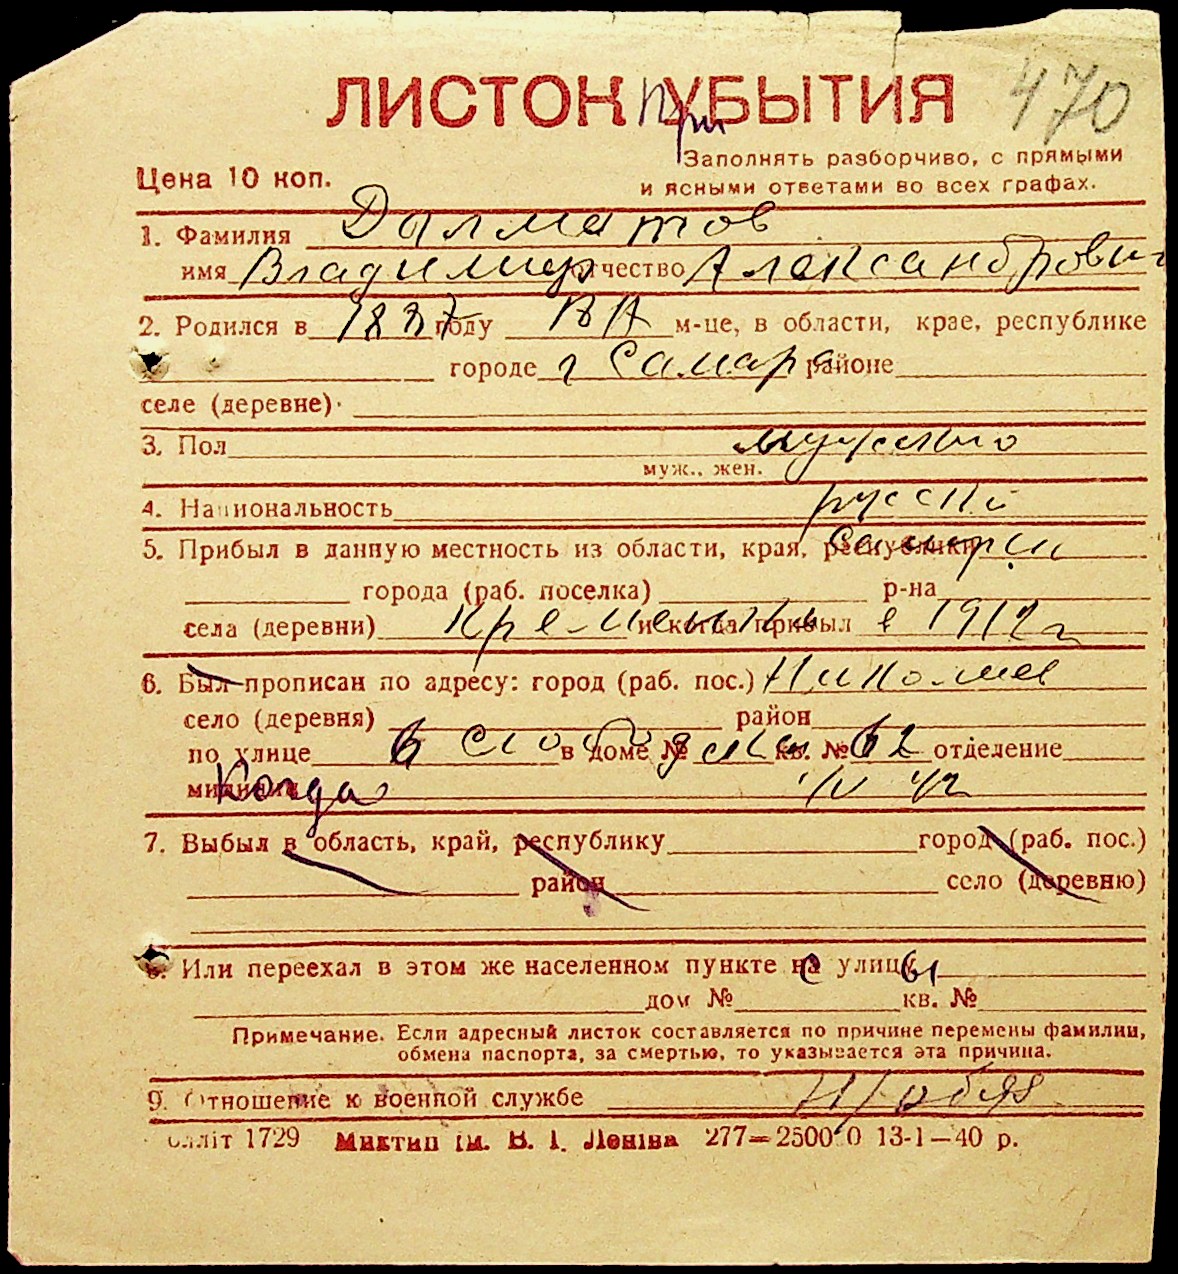 ЛИСТОК При УБЫТИЯ 470
Цена 10 коп.
Заполнять разборчиво, с прямыми
и ясными ответами во всех графах.
1. Фамилия Далматов
имя Владимир отчество Александрович
2. Родился в 1887 году м-це, в области, крае, республике
городе г Самара районе
селе (деревне)
3. Пол мужской
муж., жен.
4. Национальность русский
5. Прибыл в данную местность из области, края, республики
города (раб. поселка) р-на
села (деревни) и когда прибыл в 1912 г
6. Был прописан по адресу: город (раб. пос.) Николаев
село (деревня) район
по улице 6 Слободская в доме № кв. № 62 отделение
милиции Когда
7. Выбыл в область, край, республику город (раб. пос.)
район село (деревню)
8. Или переехал в этом же населенном пункте на улицу
дом № кв. №
Примечание. Если адресный листок составляется по причине перемены фамилии,
обмена паспорта, за смертью, то указывается эта причина.
9. Отношение к военной службе
Облліт 1729 Миктип ім. В. І. Леніна 277—25000 13-1—40 р.